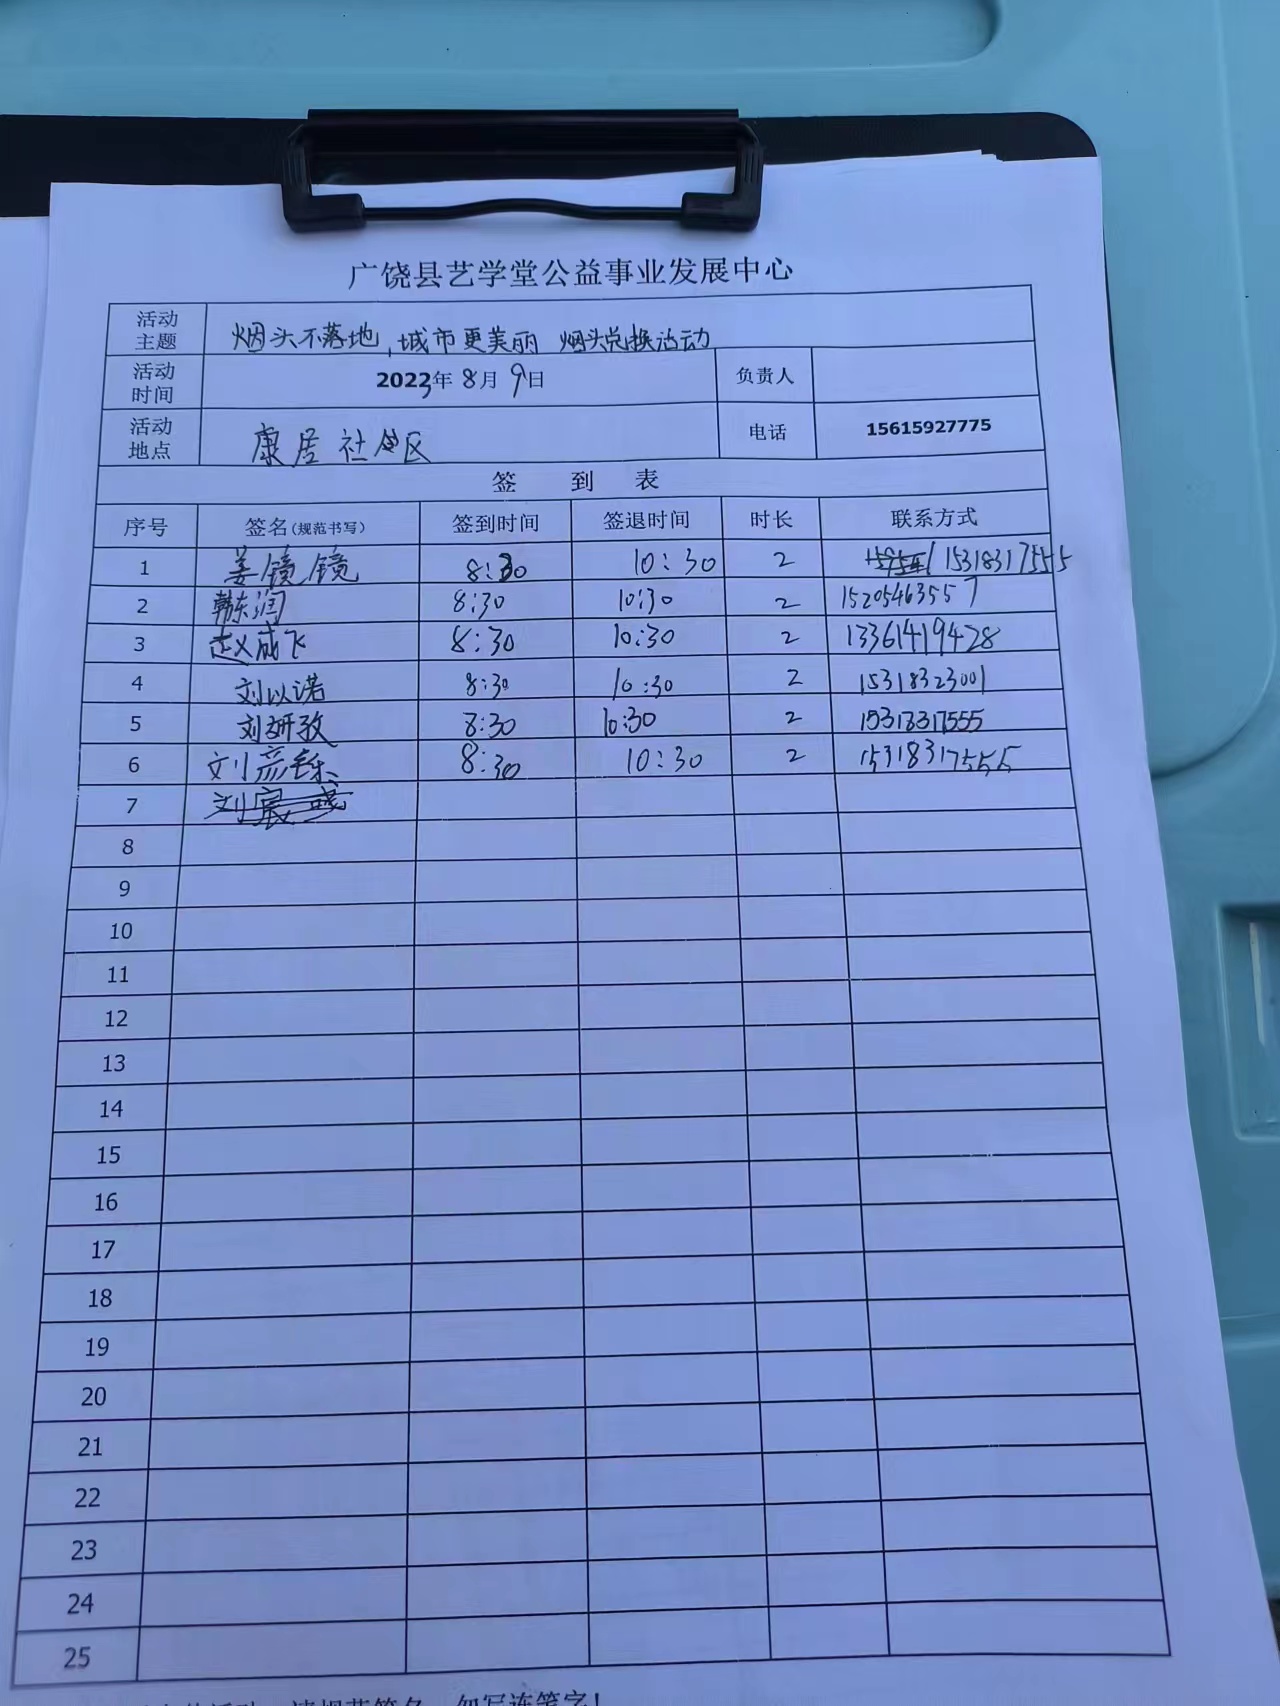 广饶县艺学堂公益事业发展中心
活动主题 烟头不落地,城市更美丽 烟头兑换活动
活动时间 2023年8月9日 负责人
活动地点 康居社区 电话 15615927775
签 到 表
序号 签名(规范书写) 签到时间 签退时间 时长 联系方式
1 姜镜镜 8:30 10:30 2 15318317555
2 韩东润 8:30 10:30 2 15205463557
3 赵成飞 8:30 10:30 2 13361419428
4 刘以诺 8:30 10:30 2 15318323001
5 刘妍孜 8:30 10:30 2 15318317555
6 刘彦铄 8:30 10:30 2 15318317555
7 刘宸
8
9
10
11
12
13
14
15
16
17
18
19
20
21
22
23
24
25
签名,勿写连笔字!